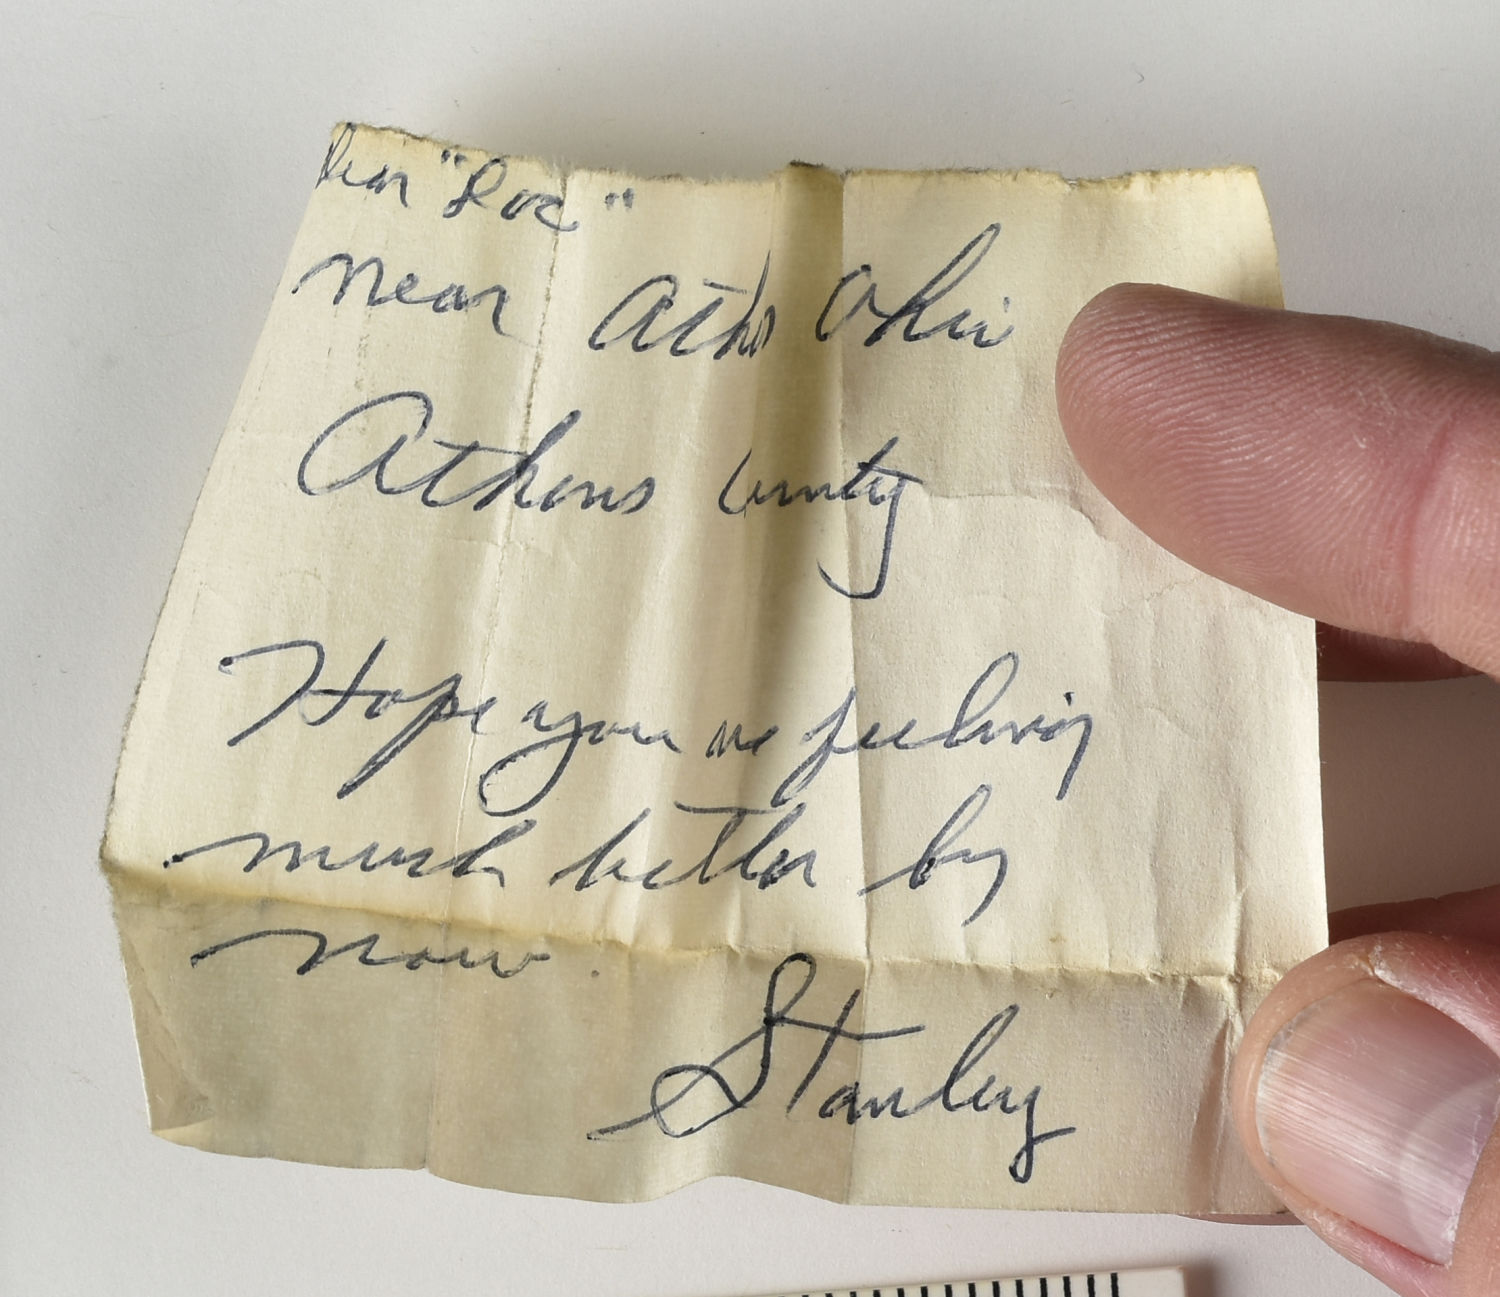 Dear "Doc"
Near Athens Ohio
Athens County
Hope you are feeling
much better by
now.
Stanley